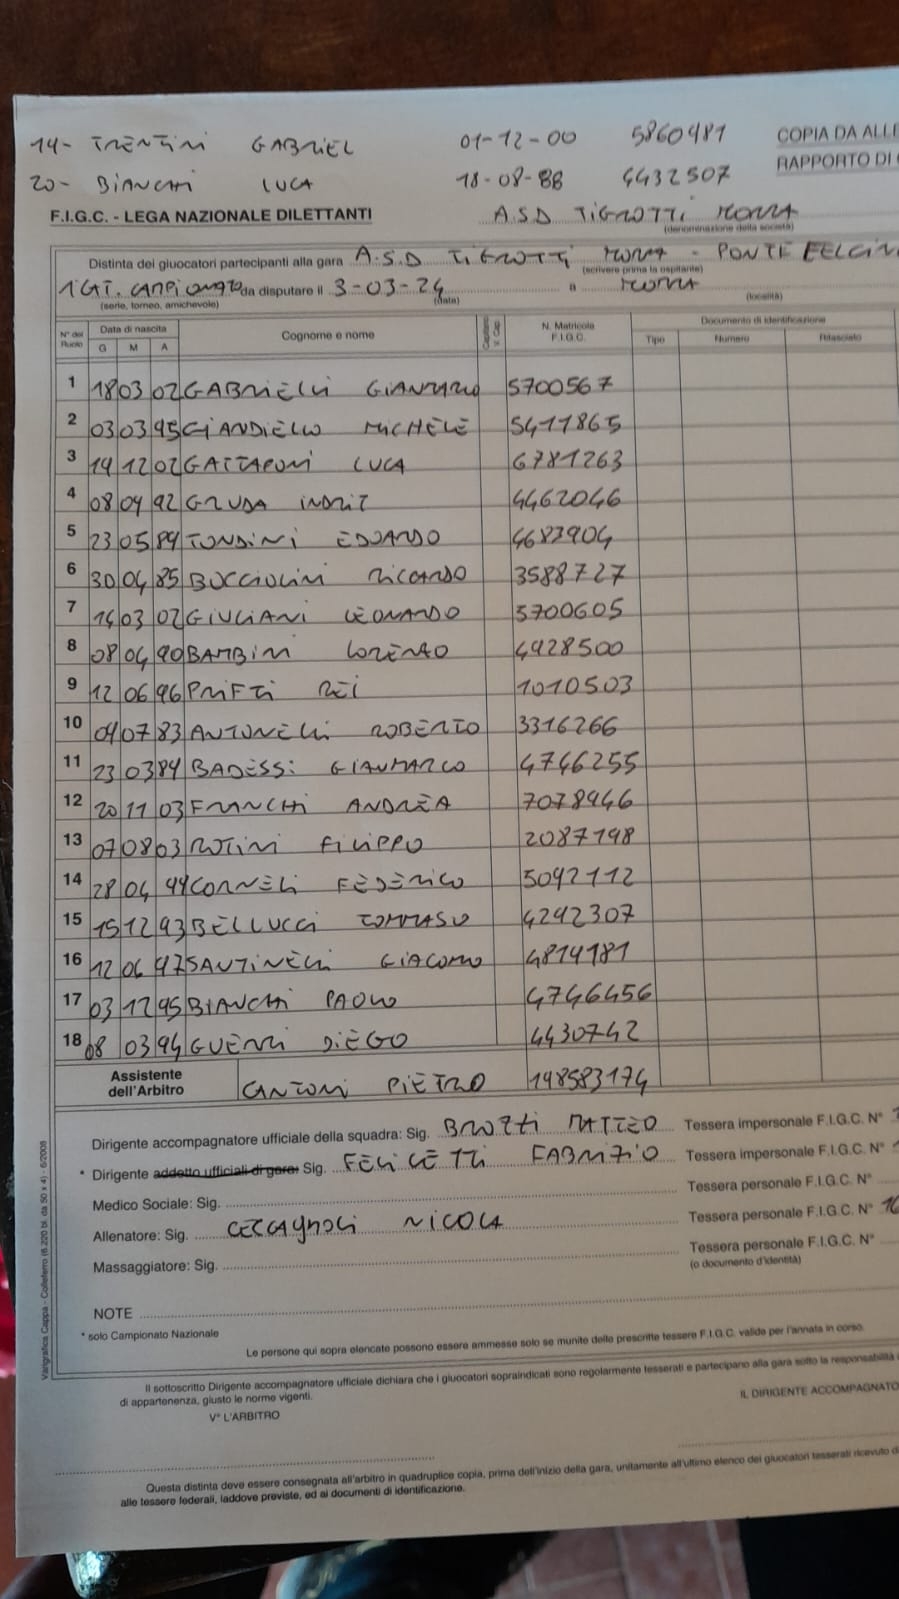 14- TRENTINI GABRIEL 01-12-00 5860481 COPIA DA ALLE
20- BIANCHI LUCA 18-08-88 4432507 RAPPORTO DI
F.I.G.C. - LEGA NAZIONALE DILETTANTI A.S.D TIGROTTI MORRA
(denominazione della società)
Distinta dei giuocatori partecipanti alla gara A.S.D TIGROTTI MORRA - PONTE FELCIN
(scrivere prima la ospitante)
1 CAT. CAMPIONATO da disputare il 3-03-24 a MORRA
(serie, torneo, amichevole) (data) (località)
N° del Ruolo Data di nascita Cognome e nome Capitano V. Cap. N. Matricola F.I.G.C. Documento di identificazione
G M A Tipo Numero Rilasciato
1 18 03 02 GABRIELLI GIANMARCO 5700567
2 03 03 95 CIANDIELLO MICHELE 5411865
3 14 12 02 GATTAPONI LUCA 6781263
4 08 09 92 GRUDA INDRIT 4462046
5 23 05 89 TONDINI EDOARDO 4683904
6 30 04 85 BUCCIOLINI RICCARDO 3588727
7 14 03 02 GIULIANI LEONARDO 5700605
8 08 04 90 BAMBINI LORENZO 4928500
9 12 06 96 PRIFTI REI 1010503
10 09 07 83 ANTONELLI ROBERTO 3316266
11 23 03 89 BADESSI GIANMARCO 4746255
12 20 11 03 FRANCHI ANDREA 7078946
13 07 08 03 ROTINI FILIPPO 2087198
14 28 04 94 CORNELI FEDERICO 5092112
15 15 12 93 BELLUCCI TOMMASO 4242307
16 12 06 97 SANTINELLI GIACOMO 4814181
17 03 12 95 BIANCHI PAOLO 4746456
18 08 03 94 GUERRI DIEGO 4430742
Assistente dell'Arbitro CANTONI PIETRO 148583174
Dirigente accompagnatore ufficiale della squadra: Sig. BROZZI MATTEO Tessera impersonale F.I.G.C. N°
* Dirigente addetto ufficiali di gara: Sig. FELICETTI FABRIZIO Tessera impersonale F.I.G.C. N°
Medico Sociale: Sig. Tessera personale F.I.G.C. N°
Allenatore: Sig. CECCAGNOLI NICOLA Tessera personale F.I.G.C. N°
Massaggiatore: Sig. Tessera personale F.I.G.C. N°
(o documento d'identità)
NOTE
* solo Campionato Nazionale
Le persone qui sopra elencate possono essere ammesse solo se munite delle prescritte tessere F.I.G.C. valide per l'annata in corso.
Il sottoscritto Dirigente accompagnatore ufficiale dichiara che i giuocatori sopraindicati sono regolarmente tesserati e partecipano alla gara sotto la responsabilità
di appartenenza, giusto le norme vigenti.
V° L'ARBITRO IL DIRIGENTE ACCOMPAGNATO
Questa distinta deve essere consegnata all'arbitro in quadruplice copia, prima dell'inizio della gara, unitamente all'ultimo elenco dei giuocatori tesserati ricevuto d
alle tessere federali, laddove previste, ed ai documenti di identificazione.
Varigrafica Cappa - Colleferro (6.220 bl. da 50 x 4) - 6/2008